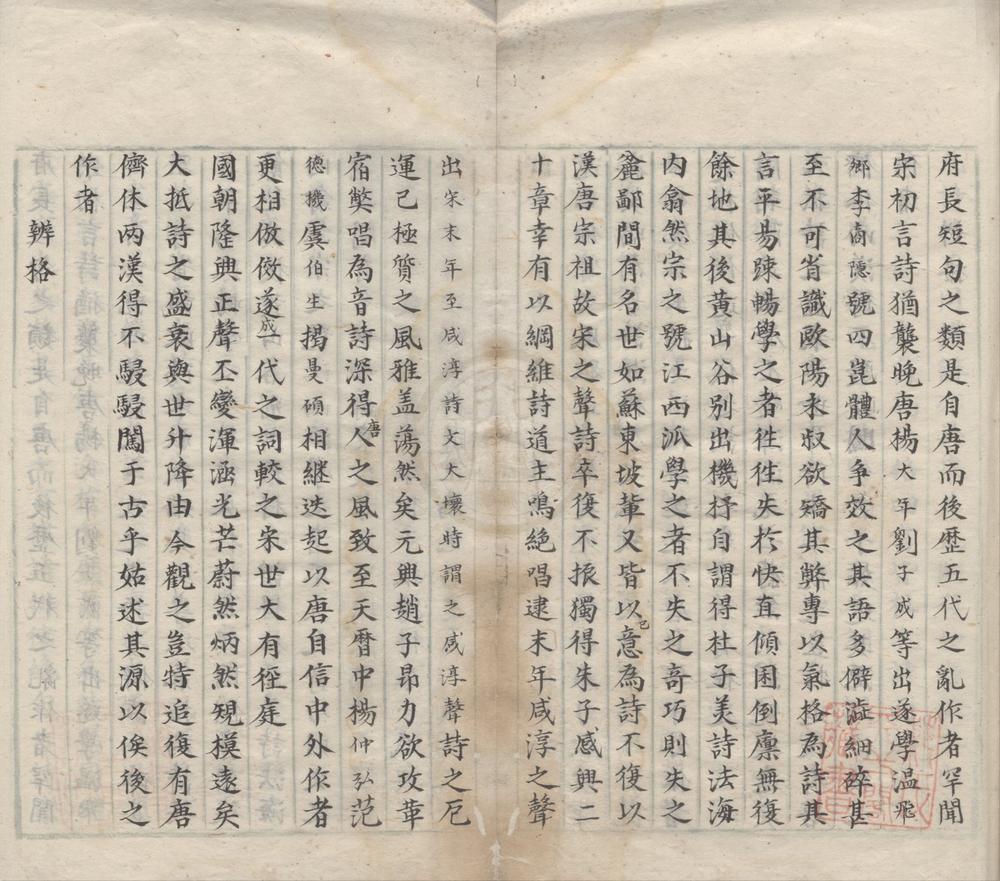 府長短句之類是自唐而後歷五代之亂作者罕聞
宋初言詩猶襲晚唐楊大年劉子成等出遂學溫飛
鄉李商隱號四崑體人爭效之其語多僻澁細碎甚
至不可省識歐陽永叔欲矯其弊專以氣格為詩其
言平易踈暢學之者徃徃失於快直傾困倒廪無復
餘地其後黃山谷別出機抒自謂得杜子美詩法海
內翕然宗之號江西派學之者不失之奇巧則失之
麄鄙間有名世如蘇東坡軰又皆以己意為詩不復以
漢唐宗祖故宋之聲詩卒復不振獨得朱子感興二
十章幸有以綱維詩道主鳴絕唱逮末年咸淳之聲
出宋末年至咸淳詩文大壞時謂之咸淳聲詩之厄
運已極質之風雅盖蕩然矣元興趙子昂力欲攻革
宿獘唱為音詩深得唐人之風致至天曆中楊仲弘范
德機虞伯生揭曼碩相継迭起以唐自信中外作者
更相倣傚遂成一代之詞較之宋世大有徑庭
國朝隆興正聲丕變渾涵光芒蔚然炳然䂓模遠矣
大抵詩之盛衰與世升降由今觀之豈特追復有唐
儕休兩漢得不駸駸闖于古乎姑述其源以俟後之
作者
辨格